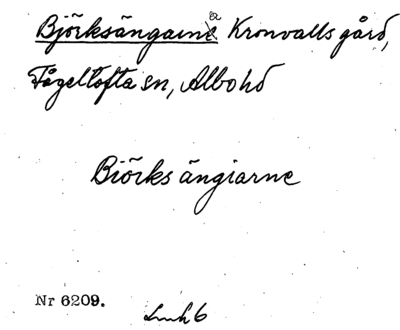 Björksängarna Kronvalls gård,
Fågeltofta sn, Albo hd
Biörks ängiarne
Nr 6209.
Lmh 6